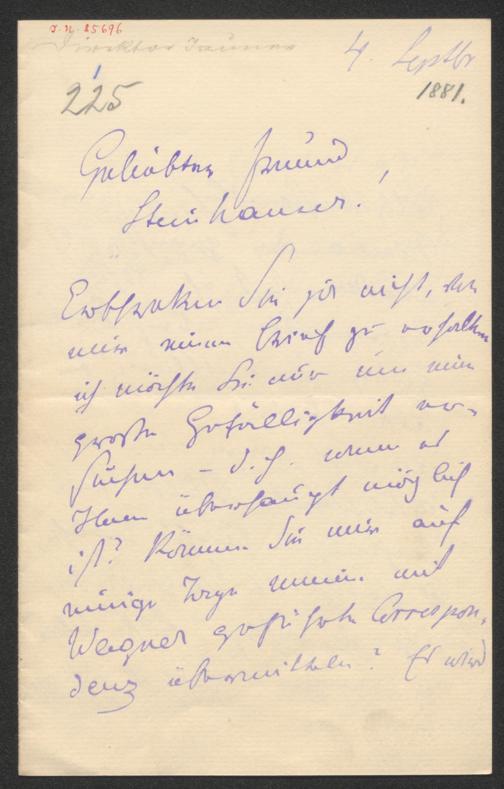 J.N. 85696
Direktor Jauner
4. Septbr
1881.
225
Geliebter Freund
Steinhauser!
Erschrecken Sie ja nicht, von
mir einen Brief zu erhalten
ich möchte Sie nur um eine
große Gefälligkeit er-
suchen – d. h. wenn es
Ihnen überhaupt möglich
ist? Können Sie mir auf
einige Tage meine mit
Wagner geführte Correspon-
denz übermitteln? Es wird